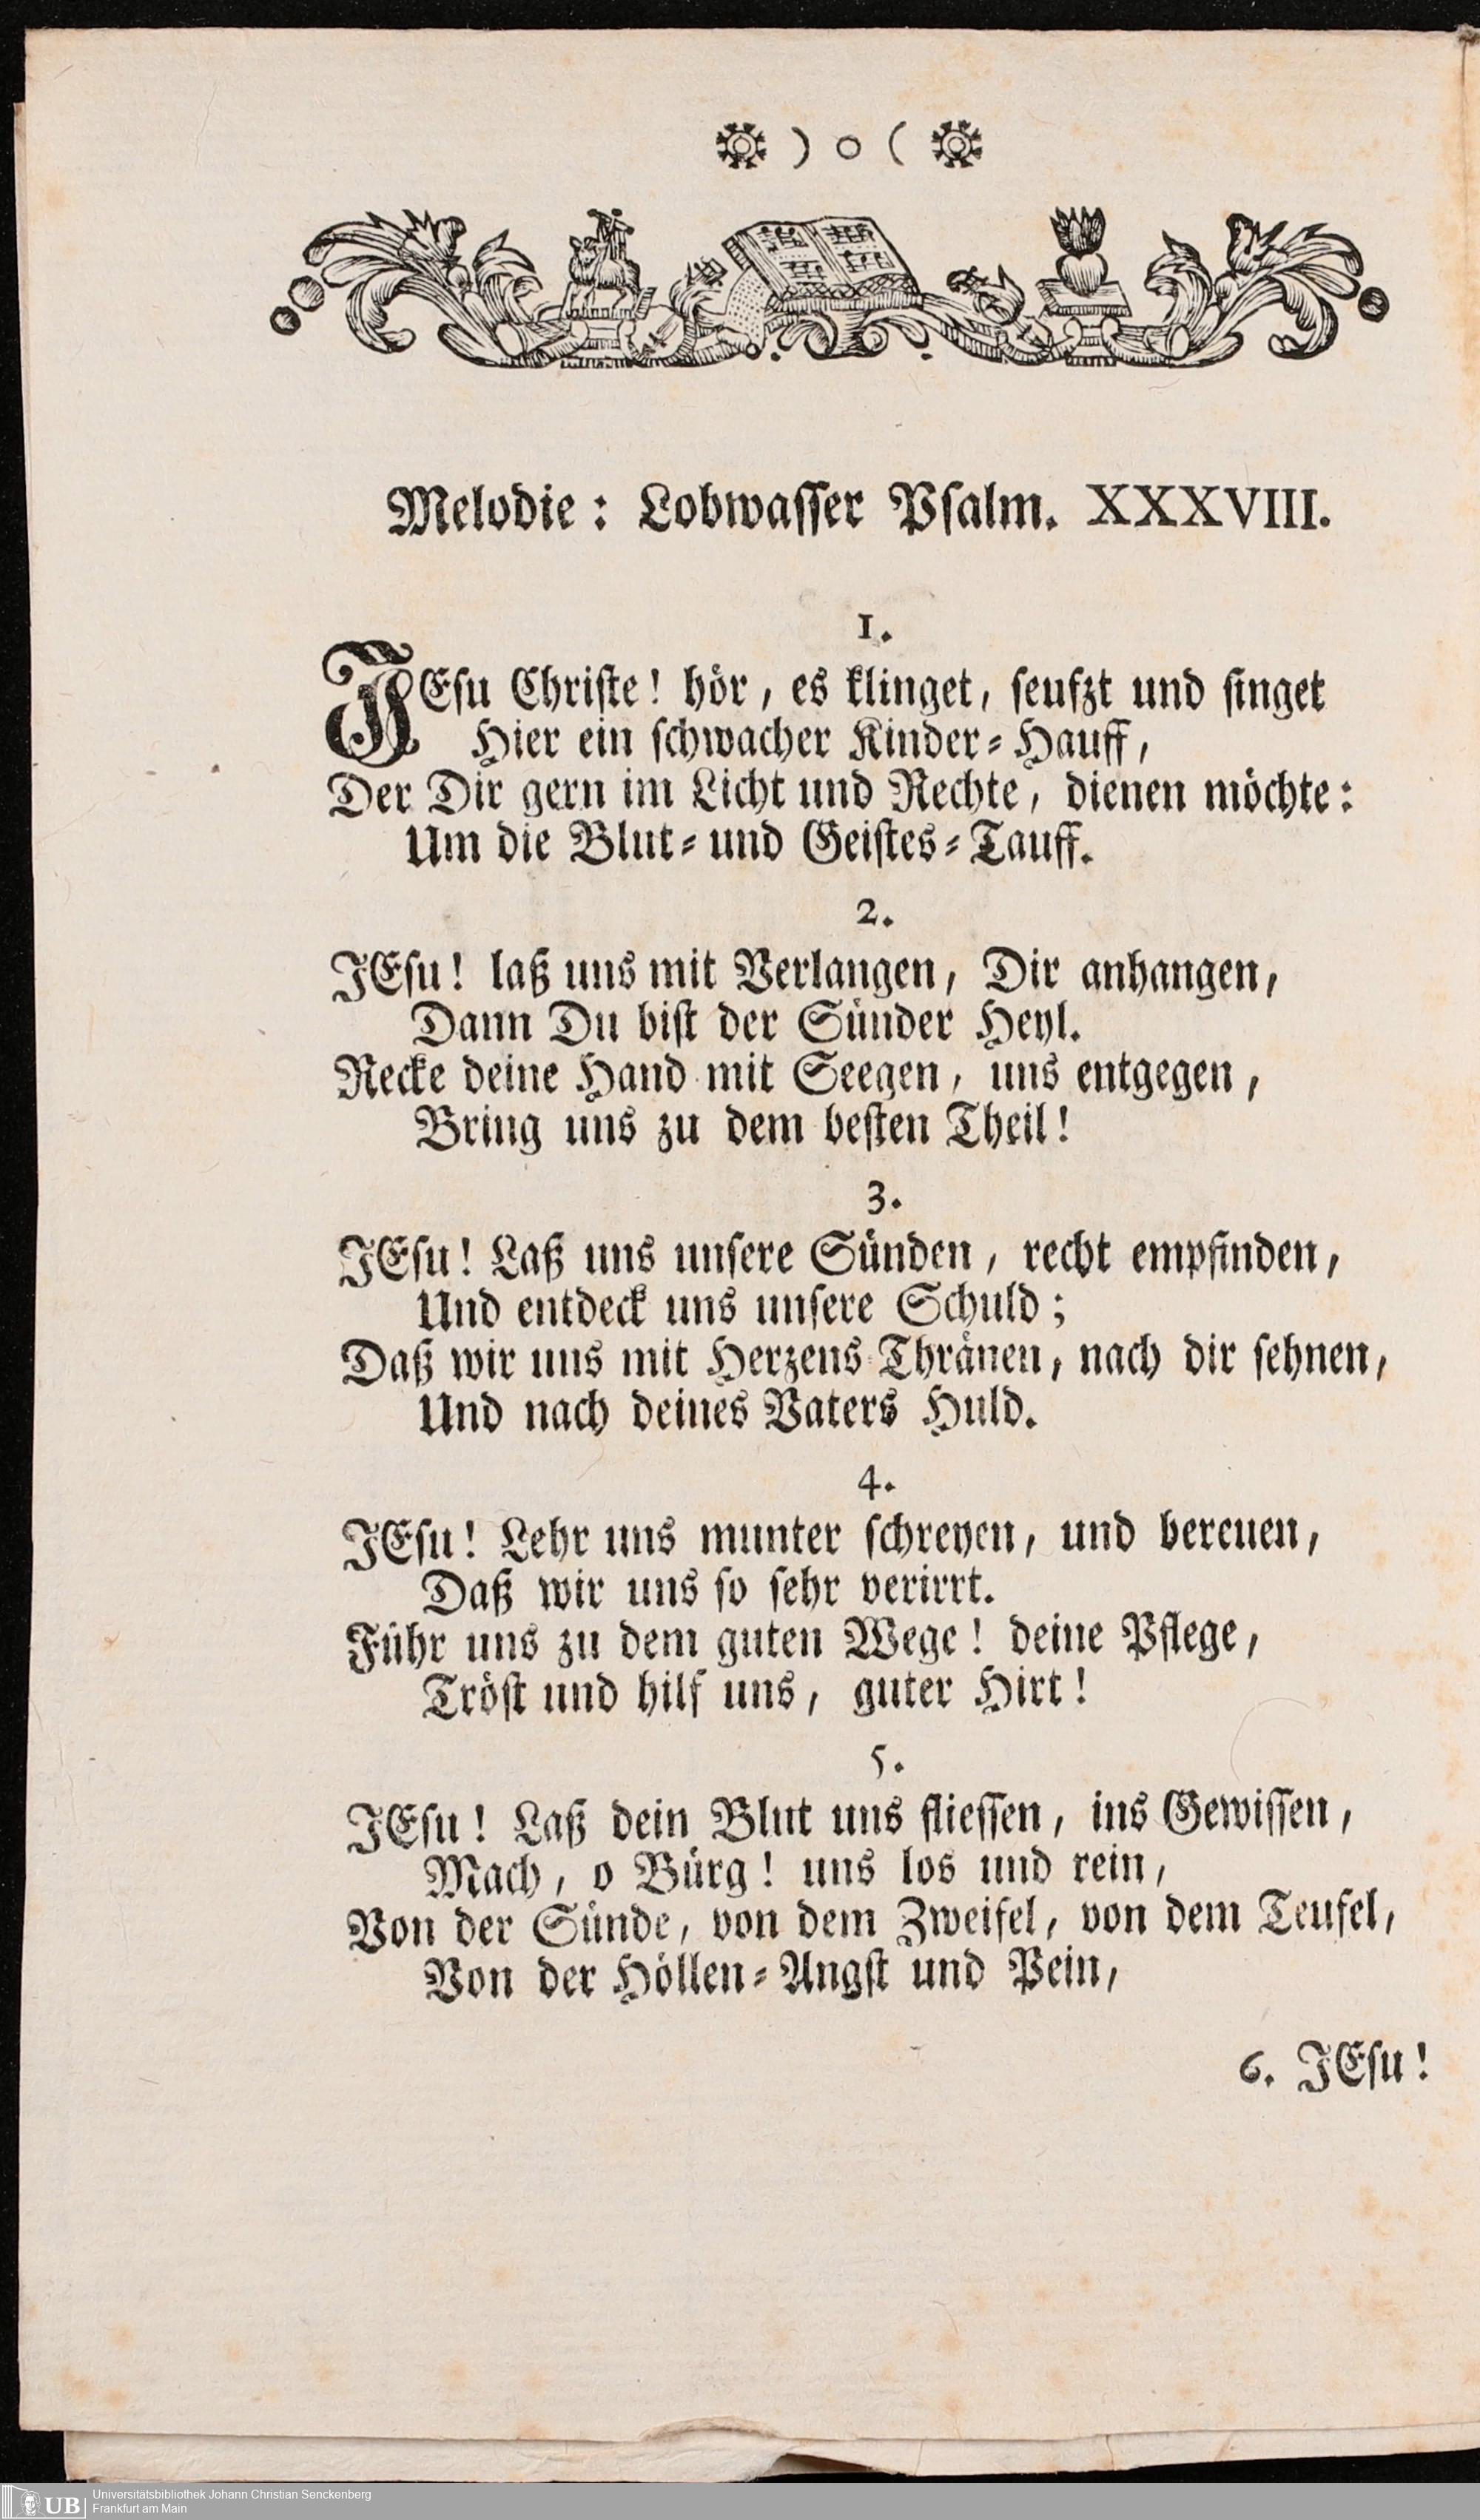 ) o (
Melodie: Lobwasser Psalm. XXXVIII.
1.
JEsu Christe! hör, es klinget, seufzt und singet
Hier ein schwacher Kinder-Hauff,
Der Dir gern im Licht und Rechte, dienen möchte:
Um die Blut- und Geistes-Tauff.
2.
JEsu! laß uns mit Verlangen, Dir anhangen,
Dann Du bist der Sünder Heyl.
Recke deine Hand mit Seegen, uns entgegen,
Bring uns zu dem besten Theil!
3.
JEsu! Laß uns unsere Sünden, recht empfinden,
Und entdeck uns unsere Schuld;
Daß wir uns mit Herzens-Thränen, nach dir sehnen,
Und nach deines Vaters Huld.
4.
JEsu! Lehr uns munter schreyen, und bereuen,
Daß wir uns so sehr verirrt.
Führ uns zu dem guten Wege! deine Pflege,
Tröst und hilf uns, guter Hirt!
5.
JEsu! Laß dein Blut uns fliessen, ins Gewissen,
Mach, o Bürg! uns los und rein,
Von der Sünde, von dem Zweifel, von dem Teufel,
Von der Höllen-Angst und Pein,
6. JEsu!
UB
Universitätsbibliothek Johann Christian Senckenberg
Frankfurt am Main